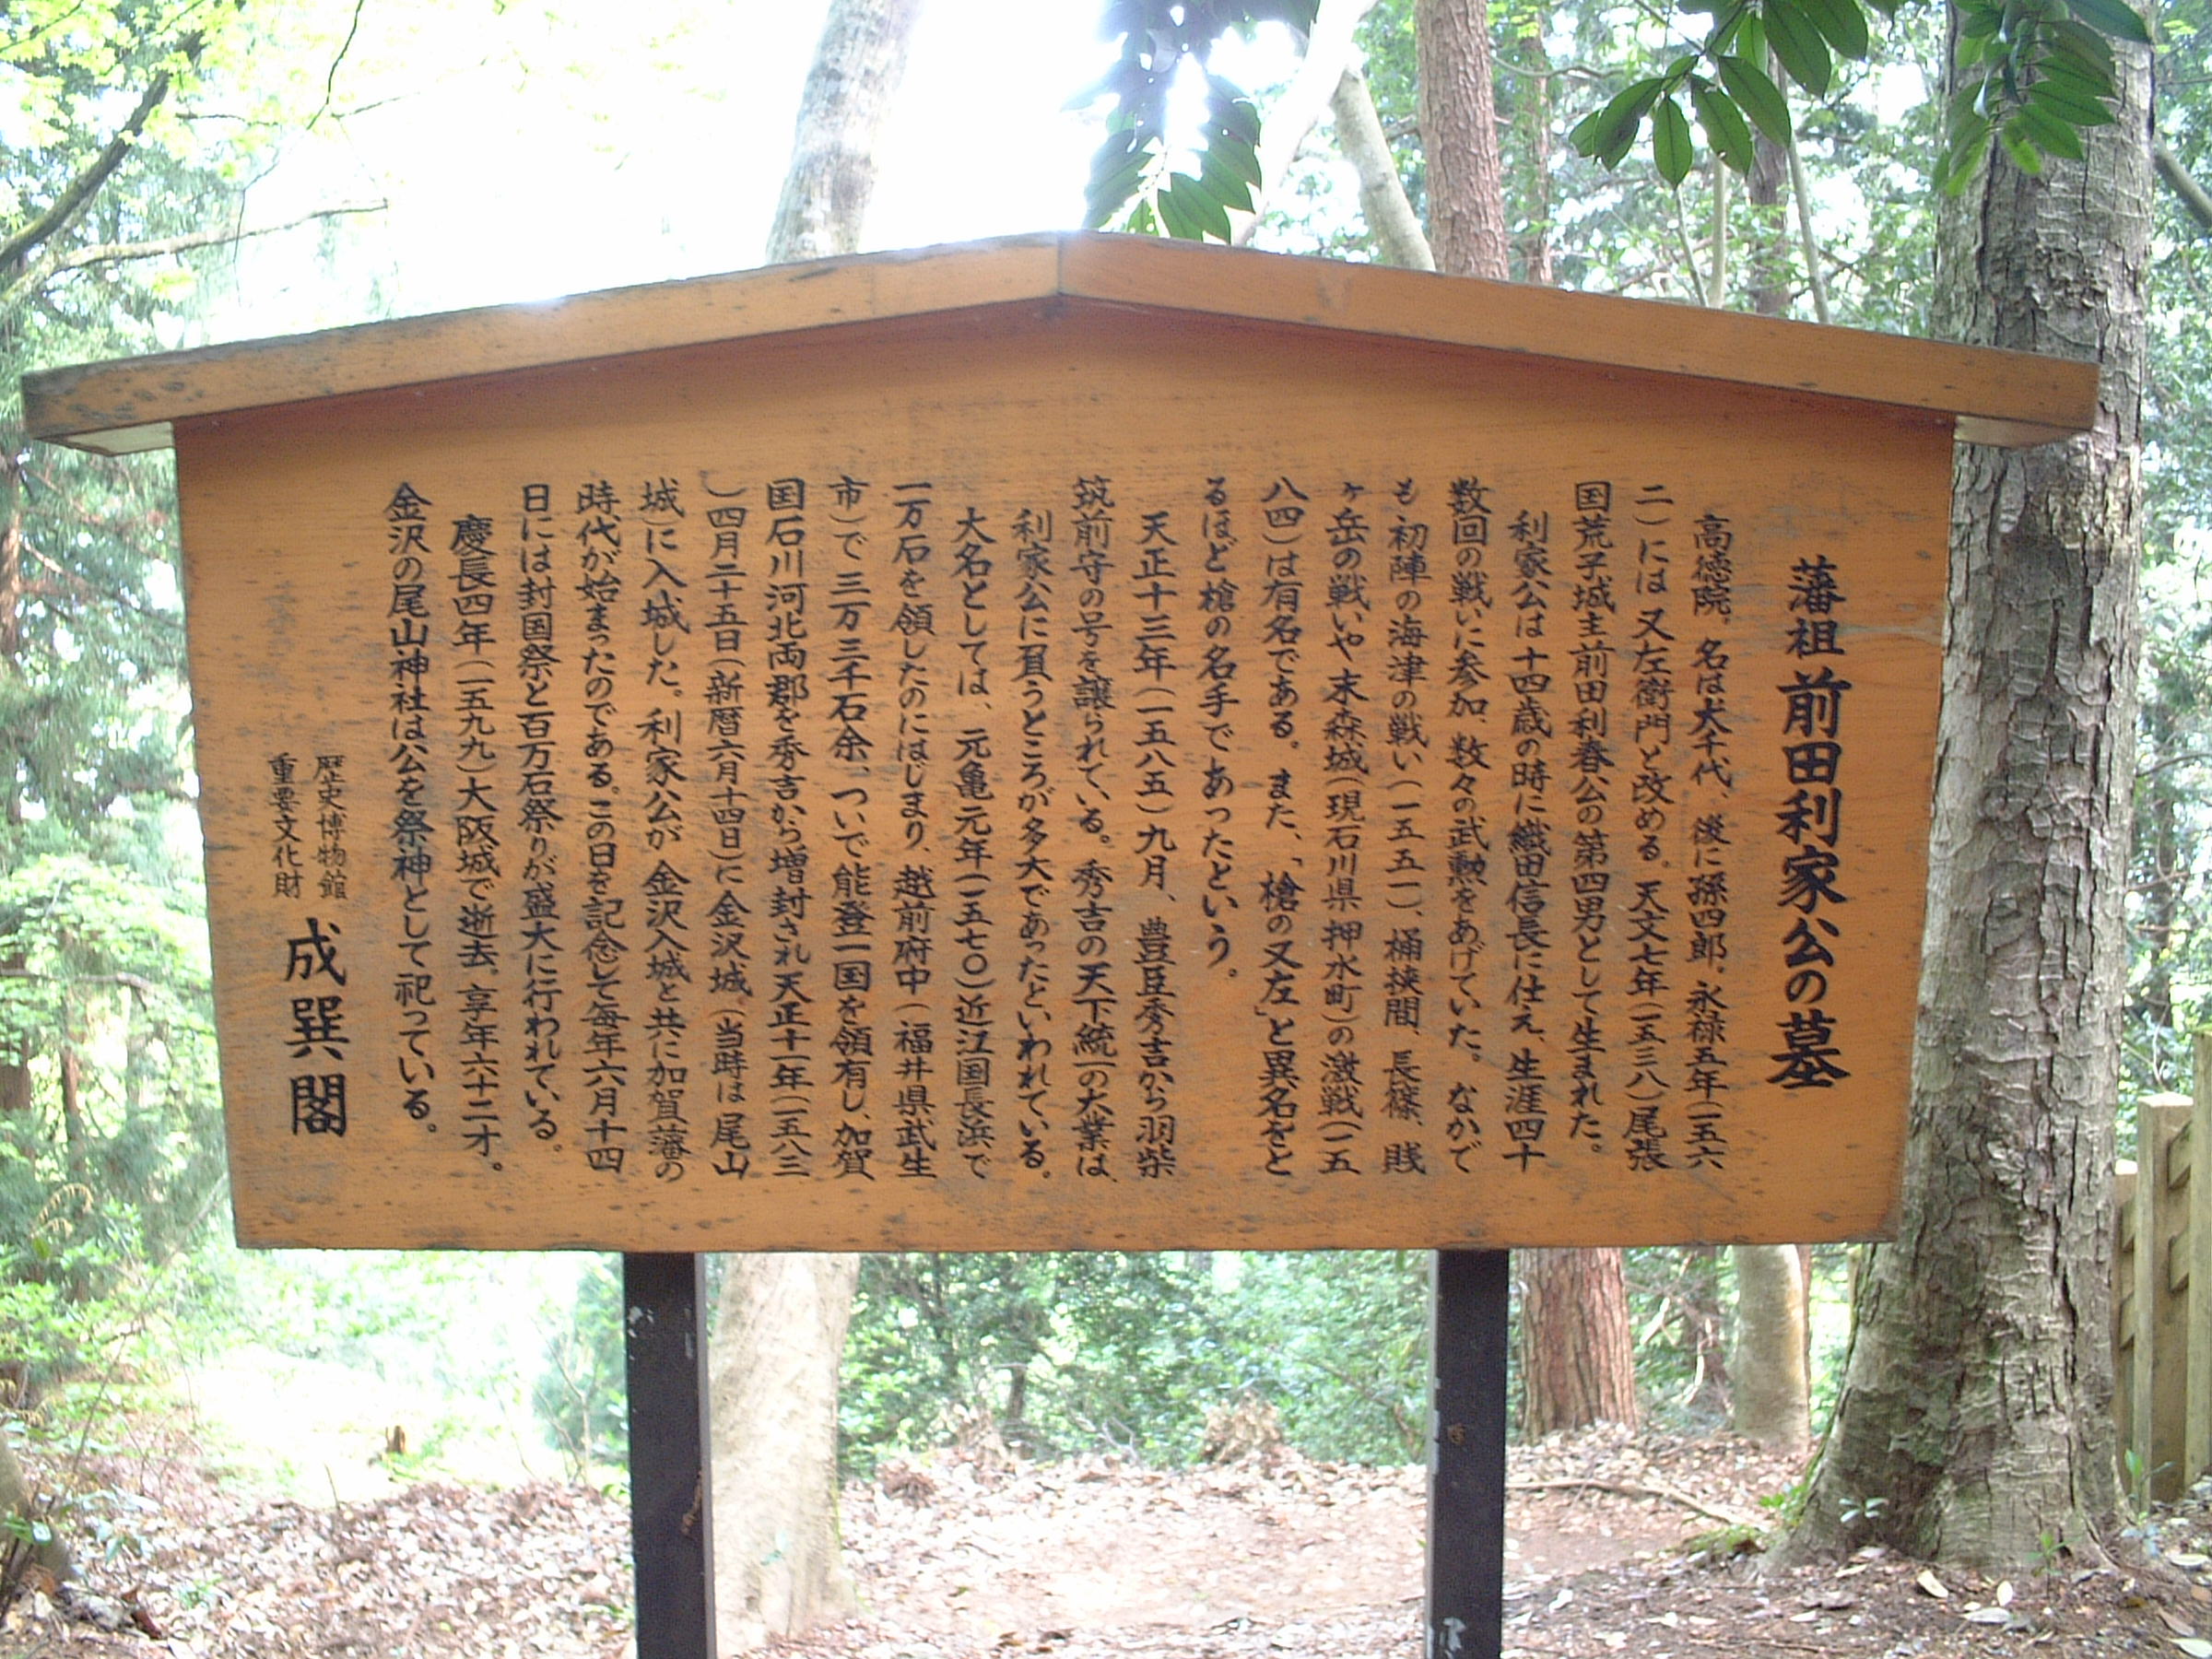 藩祖 前田利家公の墓
高徳院。名は犬千代、後に孫四郎。永禄五年(一五六
二)には又左衛門と改める。天文七年(一五三八)尾張
国荒子城主前田利春公の第四男として生まれた。
利家公は十四歳の時に織田信長に仕え、生涯四十
数回の戦いに参加、数々の武勲をあげていた。なかで
も初陣の海津の戦い(一五五一)、桶挟間、長篠、賎
ヶ岳の戦いや末森城(現石川県押水町)の激戦(一五
八四)は有名である。また、「槍の又左」と異名をと
るほど槍の名手であったという。
天正十三年(一五八五)九月、豊臣秀吉から羽柴
筑前守の号を譲られている。秀吉の天下統一の大業は、
利家公に負うところが多大であったといわれている。
大名としては、元亀元年(一五七〇)近江国長浜で
一万石を領したのにはじまり、越前府中(福井県武生
市)で三万三千石余、ついで能登一国を領有し、加賀
国石川河北両郡を秀吉から増封され天正十一年(一五八三
)四月二十五日(新暦六月十四日)に金沢城。(当時は尾山
城)に入城した。利家公が金沢入城と共に加賀藩の
時代が始まったのである。この日を記念して毎年六月十四
日には封国祭と百万石祭りが盛大に行われている。
慶長四年(一五九九)大阪城で逝去。享年六十二才。
金沢の尾山神社は公を祭神として祀っている。
歴史博物館
重要文化財
成巽閣